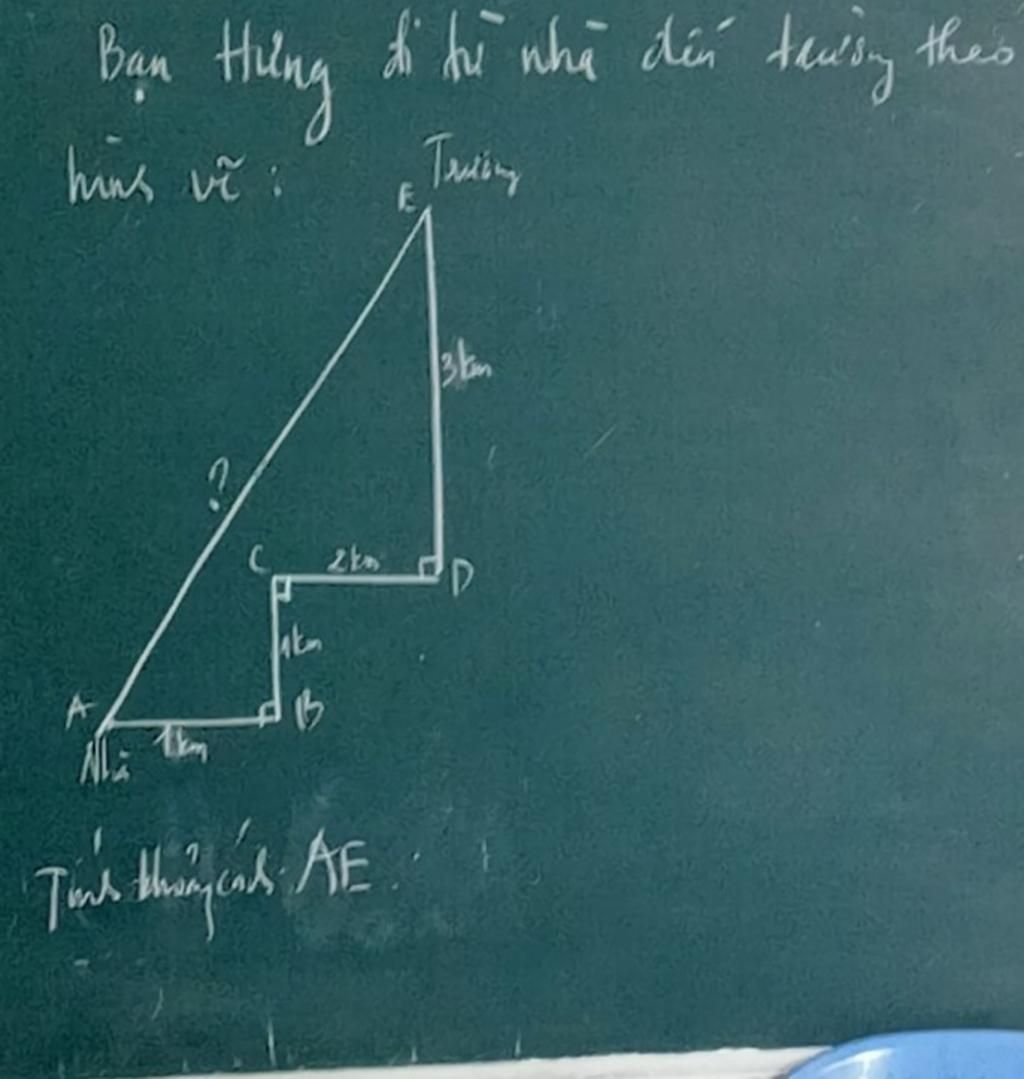 Bạn Hưng đi từ nhà đến trường theo
hình vẽ :
Trường
E
3km
?
C
2km
D
1km
A
B
1km
Nhà
Tính khoảng cách AE.